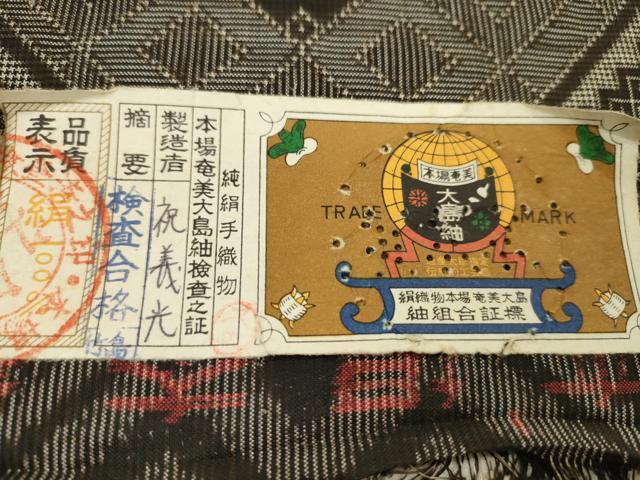 純絹手織物
本場奄美大島紬検査之証
製造者 祝義光
摘要 検査合格
品質
表示
絹100%
TRADE MARK
本場奄美
大島紬
絹織物本場奄美大島
紬組合証標